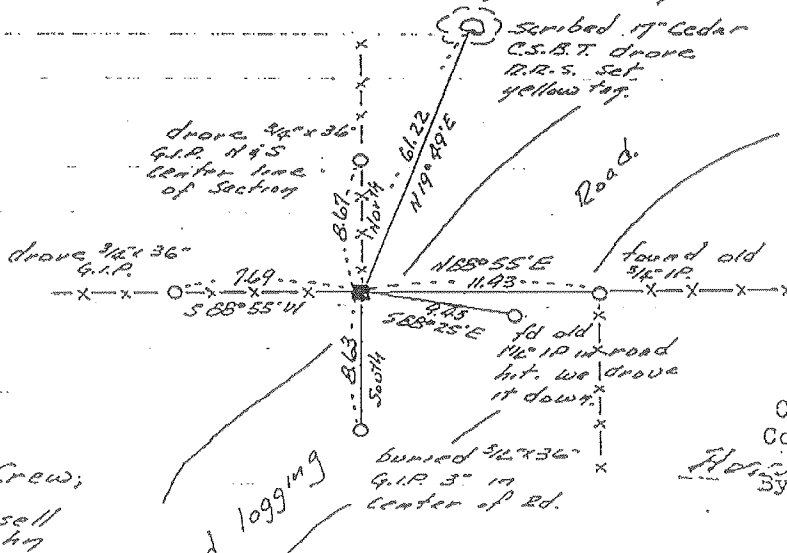 Scribed 17" Cedar
C.S.B.T. drove
R.R.S. Set
yellow tag.
drove 3/4" x 36"
G.I.P. N & S
center line
of Section
61.22
N19°49'E
Road
8.67
North
drove 3/4" x 36"
G.I.P.
7.69
S 88°55'W
N88°55'E
11.93
found old
3/4" IP.
S88°25'E
fd old
IP in road
hit. we drove
it down.
8.63
South
buried 3/4" x 36"
G.I.P. 3" in
center of Rd.
logging
Crew;
sell
hn
By